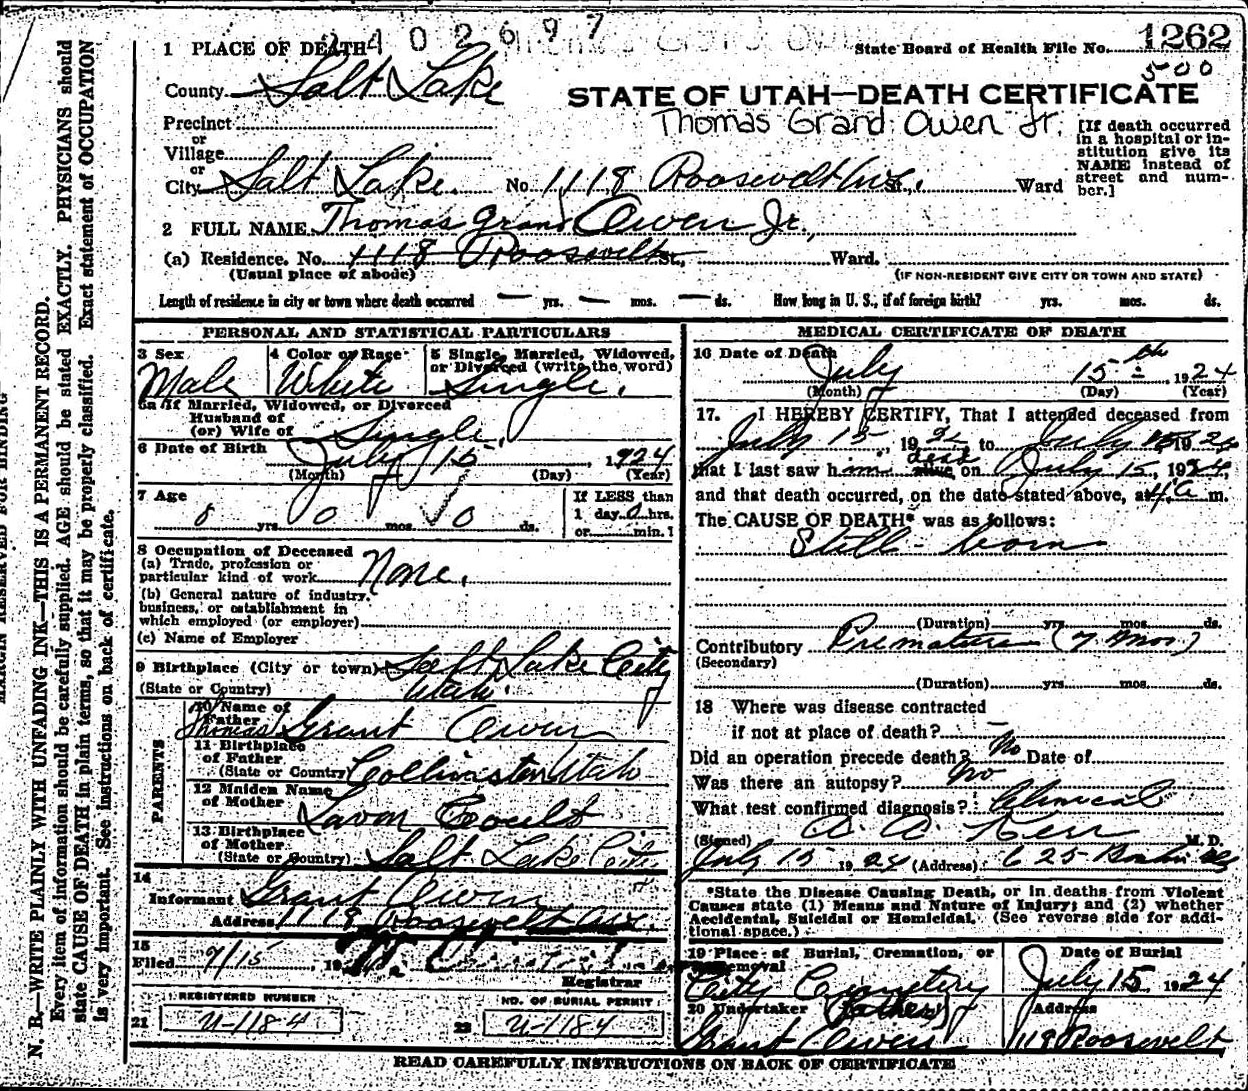 2402697
1 PLACE OF DEATH
State Board of Health File No. 1262
500
County Salt Lake
STATE OF UTAH—DEATH CERTIFICATE
Thomas Grand Owen Jr.
Precinct
or
Village
or
City Salt Lake. No. 1118 Roosevelt Ave. St., Ward
[If death occurred
in a hospital or in-
stitution give its
NAME instead of
street and num-
ber.]
2 FULL NAME Thomas Grand Owen Jr.,
(a) Residence. No. 1118 Roosevelt St., Ward.
(Usual place of abode) (IF NON-RESIDENT GIVE CITY OR TOWN AND STATE)
Length of residence in city or town where death occurred — yrs. — mos. — ds. How long in U. S., if of foreign birth? yrs. mos. ds.
PERSONAL AND STATISTICAL PARTICULARS
3 Sex
Male
4 Color or Race
White
5 Single, Married, Widowed,
or Divorced (write the word)
Single.
5a If Married, Widowed, or Divorced
Husband of
(or) Wife of Single.
6 Date of Birth July 15, 1924
(Month) (Day) (Year)
7 Age
0 yrs. 0 mos. 0 ds.
If LESS than
1 day 0 hrs.
or min. ?
8 Occupation of Deceased
(a) Trade, profession or
particular kind of work None.
(b) General nature of industry,
business, or establishment in
which employed (or employer)
(c) Name of Employer
9 Birthplace (City or town) Salt Lake City
(State or Country) Utah.
PARENTS
10 Name of
Father Thomas Grant Owen
11 Birthplace
of Father
(State or Country) Collinston Utah
12 Maiden Name
of Mother Lavon Coult
13 Birthplace
of Mother
(State or Country) Salt Lake City
14
Informant Grant Owen
Address 1118 Roosevelt Ave.
15
Filed 7/15, 19
Registrar
REGISTERED NUMBER
21 U-1184
NO. OF BURIAL PERMIT
22 U-1184
MEDICAL CERTIFICATE OF DEATH
16 Date of Death July 15th, 1924
(Month) (Day) (Year)
17. I HEREBY CERTIFY, That I attended deceased from
July 15, 1924 to July 15 1924
that I last saw him dead alive on July 15, 1924,
and that death occurred, on the date stated above, at 4 a m.
The CAUSE OF DEATH* was as follows:
Still-born
(Duration) yrs. mos. ds.
Contributory Premature (7 mos)
(Secondary)
(Duration) yrs. mos. ds.
18 Where was disease contracted
if not at place of death? —
Did an operation precede death? No Date of
Was there an autopsy? No
What test confirmed diagnosis? Clinical
(Signed) A. A. Kerr M. D.
July 15 1924 (Address) 625 Boston Bldg
*State the Disease Causing Death, or in deaths from Violent
Causes state (1) Means and Nature of Injury; and (2) whether
Accidental, Suicidal or Homicidal. (See reverse side for addi-
tional space.)
19 Place of Burial, Cremation, or
Removal
City Cemetery
Date of Burial
July 15. 1924
20 Undertaker (Father)
Grant Owen
Address
1118 Roosevelt
READ CAREFULLY INSTRUCTIONS ON BACK OF CERTIFICATE
MARGIN RESERVED FOR BINDING
N. B.—WRITE PLAINLY WITH UNFADING INK—THIS IS A PERMANENT RECORD.
Every item of information should be carefully supplied. AGE should be stated EXACTLY. PHYSICIANS should
state CAUSE OF DEATH in plain terms, so that it may be properly classified. Exact statement of OCCUPATION
is very important. See instructions on back of certificate.